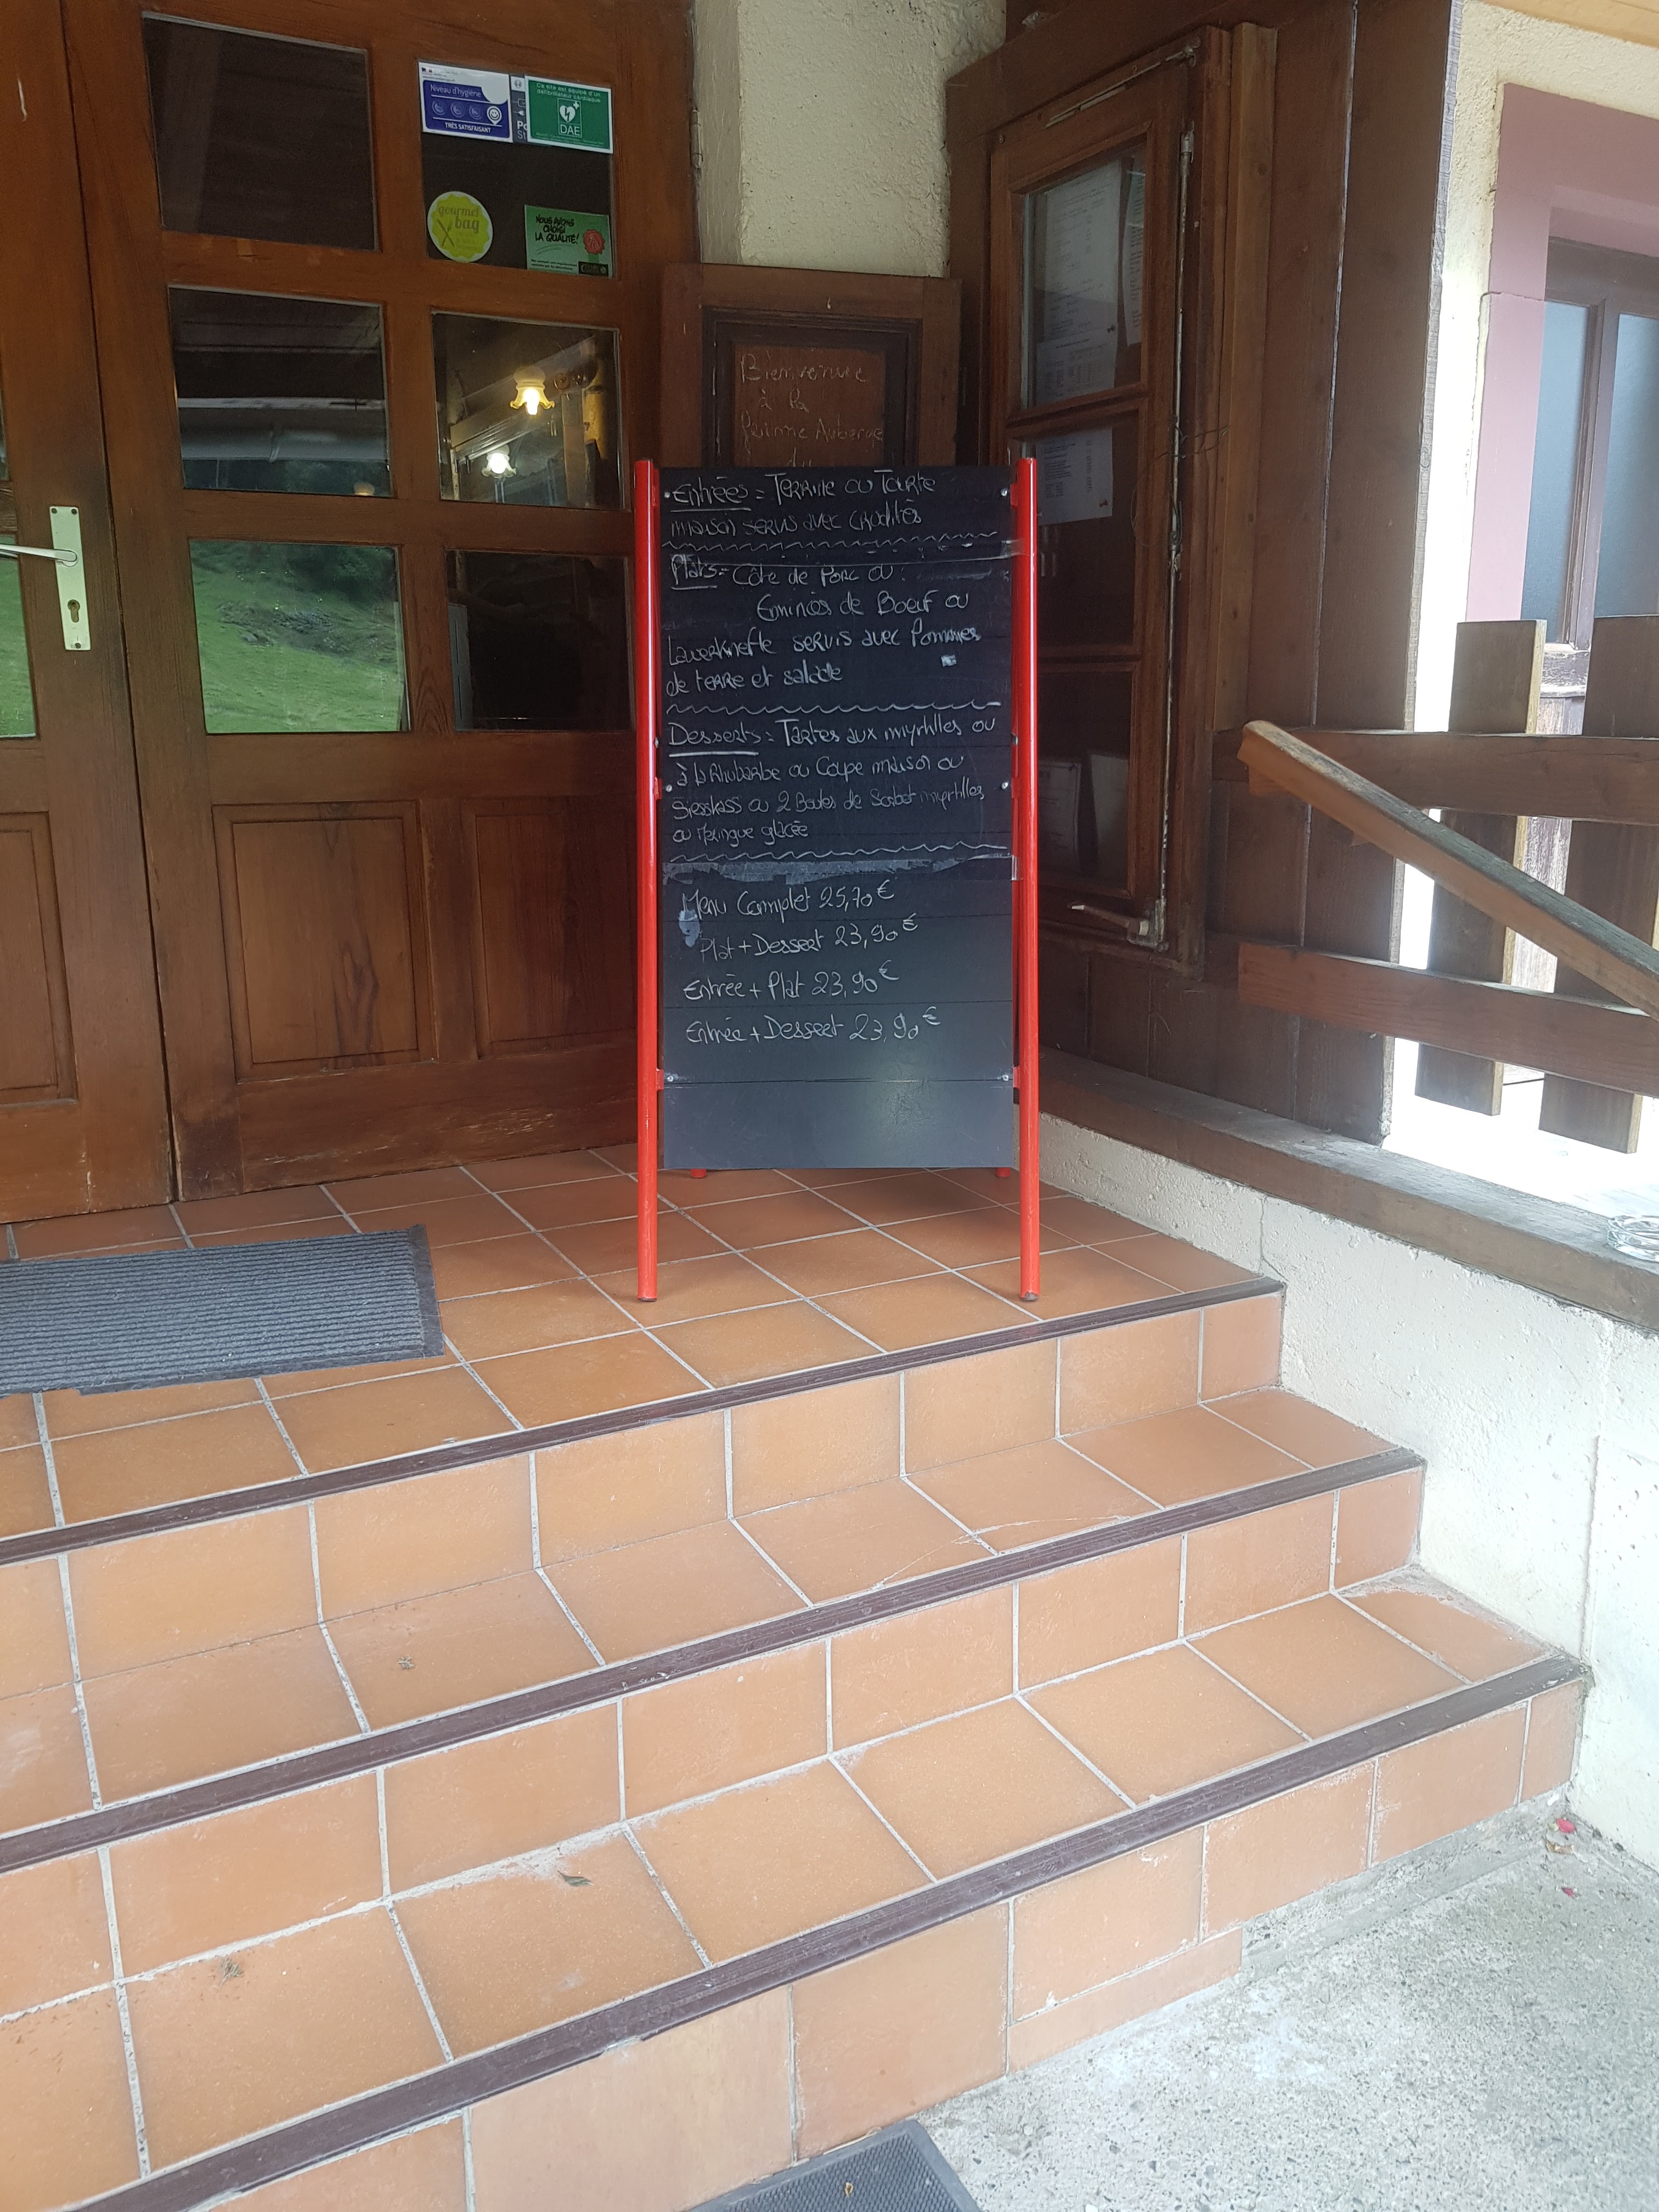 Niveau d'hygiène
TRÈS SATISFAISANT
Ce site est équipé d'un
défibrillateur cardiaque
DAE
gourmet
bag
NOUS AVONS
CHOISI
LA QUALITÉ!
Bienvenue
à la
ferme Auberge
du
Entrées = Terrine ou Tourte
maison servis avec crudités
Plats = Côte de Porc ou :
Eminces de Boeuf ou
Lawerknefle servis avec Pommes
de terre et salade
Desserts = Tartes aux myrtilles ou
à la Rhubarbe ou Coupe maison ou
Siesskass ou 2 Boules de Sorbet myrtilles
ou Meringue glacée
Menu Complet 25,70€
Plat + Dessert 23,90€
Entrée + Plat 23,90€
Entrée + Dessert 23,90€